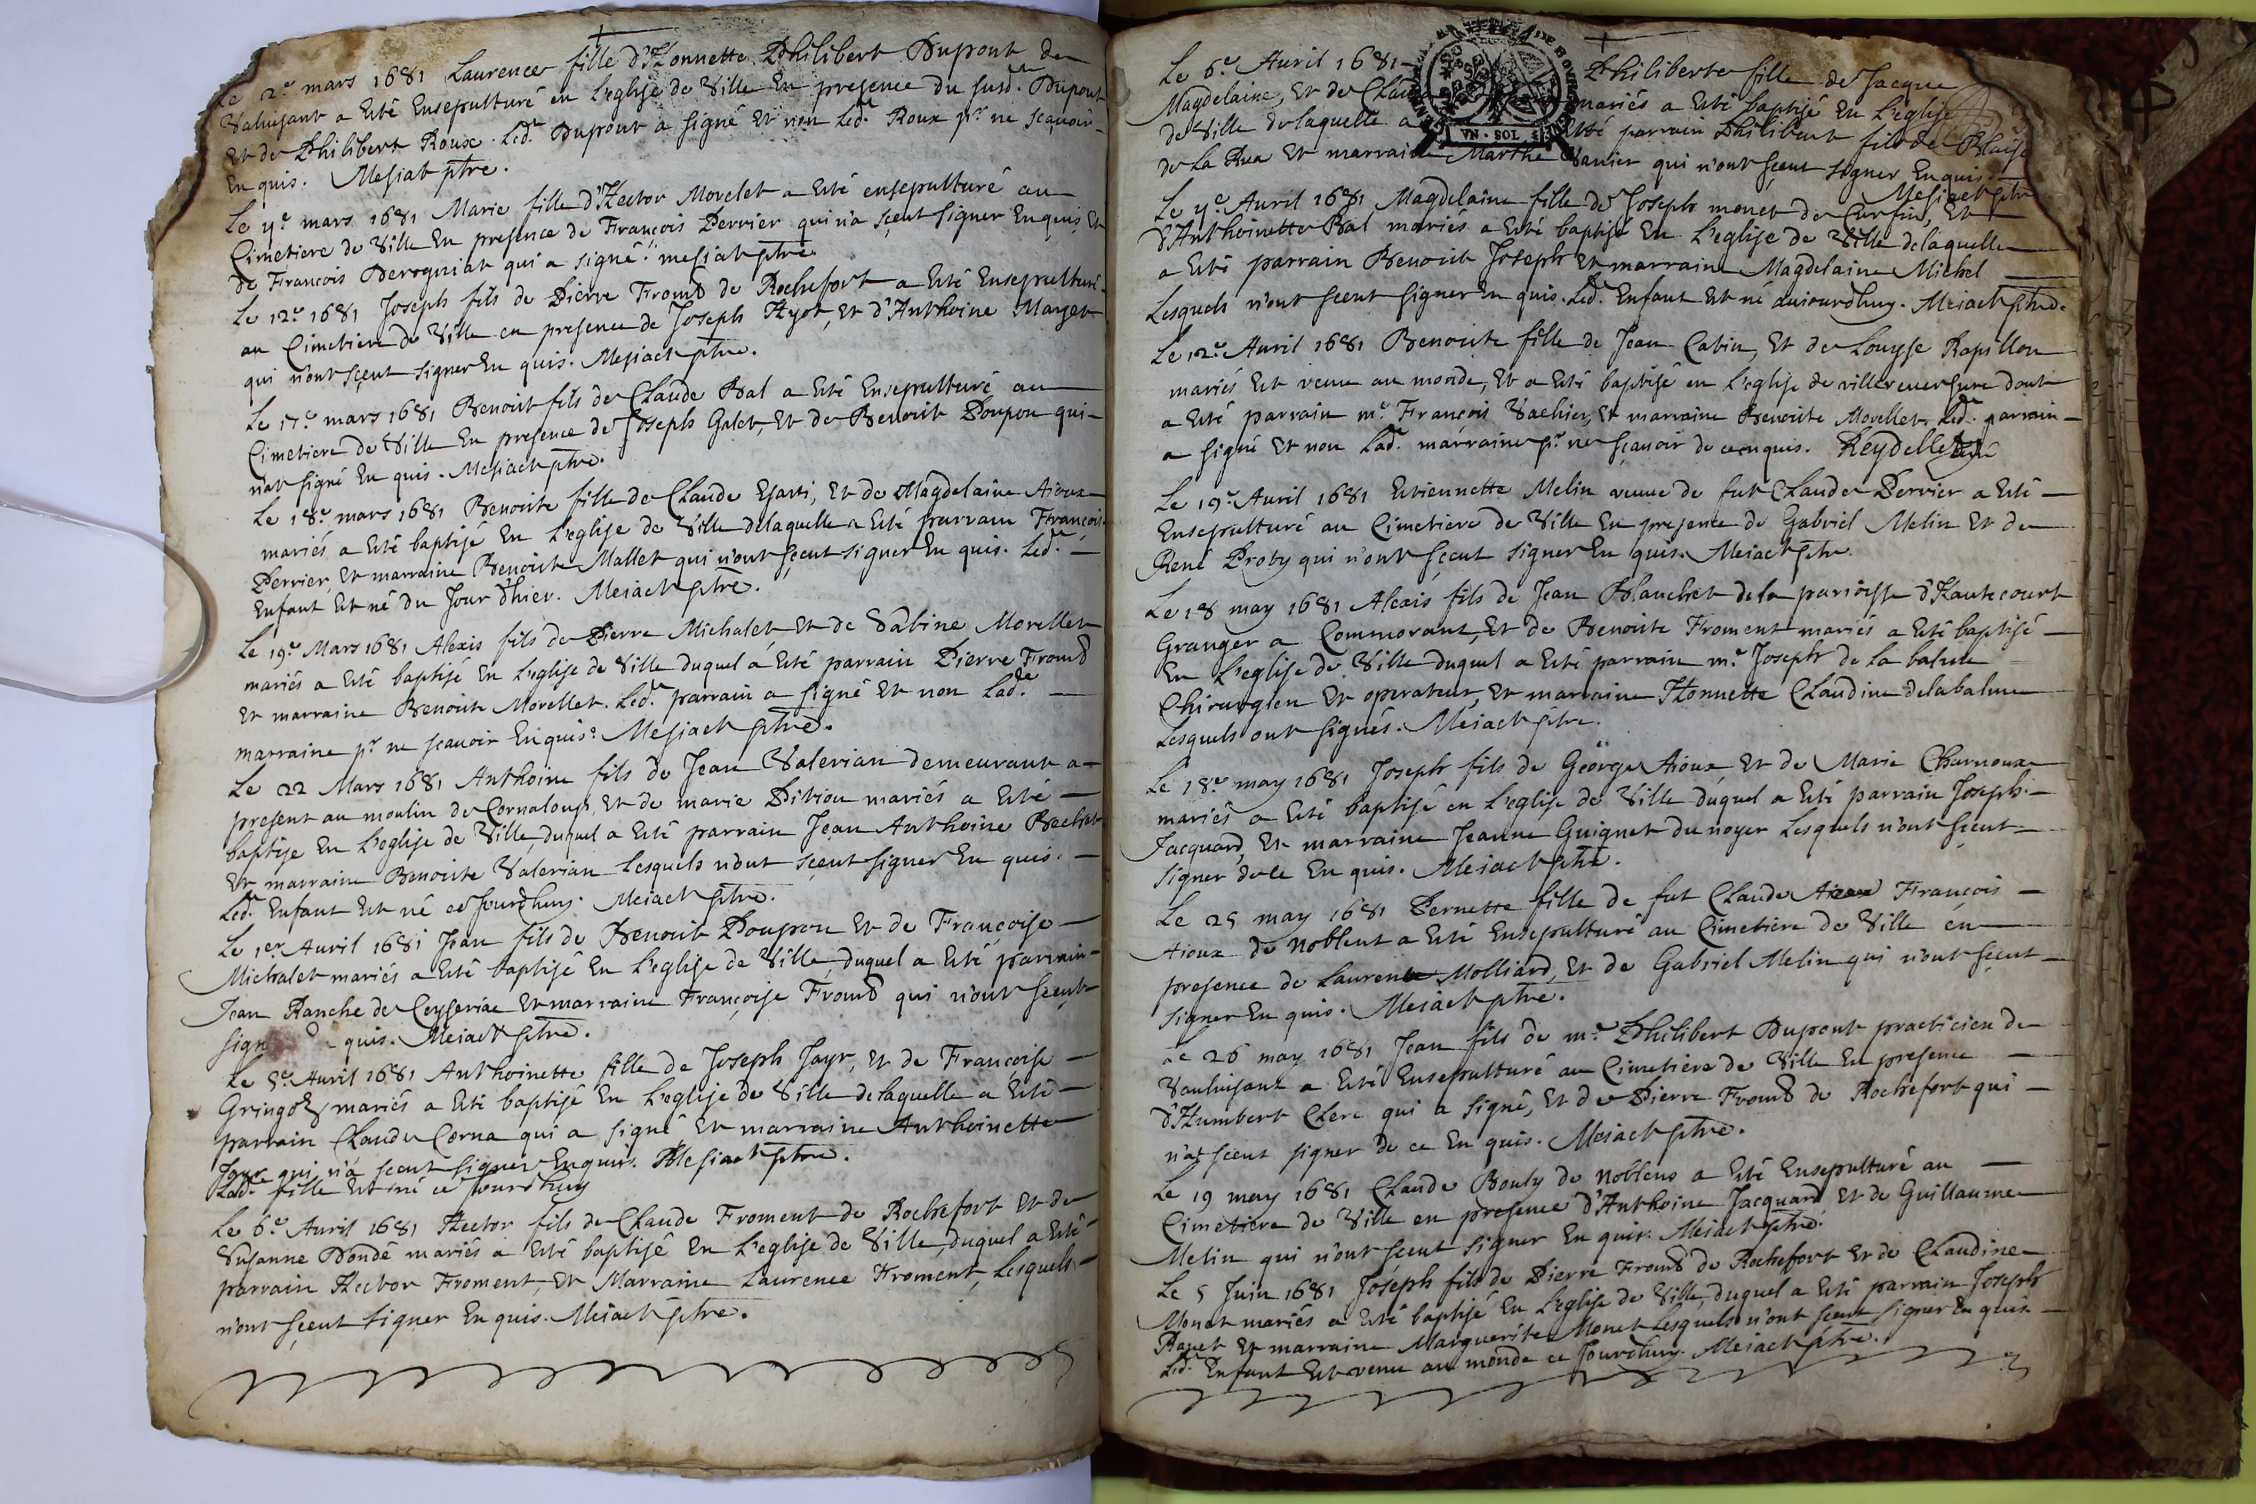 Le 2e mars 1681 Laurence fille d'Honnette Philibert Dupont de
Valuisant a Esté Ensepulturé en L'eglise de Ville En presence du susd. Dupont
Et de Philibert Roux. Led. Dupont a signé Et non Led. Roux pr. ne sçavoir
Enquis. Mesiat ptre.
Le 4e mars 1681 Marie fille d'Hector Morelet a Esté ensepulturé au
Cimetiere de Ville En presence de François Perrier qui n'a sçeut signer Enquis Et
de François Derogniat qui a signé. mesiat ptre
Le 12e 1681 Joseph fils de Pierre Fromt de Rochefort a Esté Ensepulturé
au Cimetiere de Ville en presence de Joseph Ayot, Et d'Anthoine Marget
qui n'ont sçeut signer En quis. Mesiact ptre.
Le 17e mars 1681 Benoit fils de Claude Bal a Esté Ensepulturé au
Cimetiere de Ville En presence de Joseph Galet, Et de Benoit Poupon qui
n'at signé En quis. Mesiact ptre.
Le 18e mars 1681 Benoite fille de Claude Ejarti, Et de Magdelaine Aioux
mariés a Esté baptisé En L'eglise de Ville delaquelle a Esté parrain François
Perrier, Et marraine Benoite Mallet qui n'ont sçeut signer En quis. Led.
Enfant Est né du Jour d'hier. Meiact ptre.
Le 19e Mars 1681 Alexis fils de Pierre Michalet Et de Sabine Morellet
mariés a Esté baptisé En L'eglise de Ville duquel a Esté parrain Pierre Fromt
Et marraine Benoite Morellet. Led. parrain a signé Et non Lade
marraine pr. ne scavoir Enquis. Mesiact ptre.
Le 22 Mars 1681 Anthoine fils de Jean Valerian demeurant a
present au moulin de Cornaloup, Et de marie Pition mariés a Esté
baptise En L'eglise de Ville, duquel a Esté parrain Jean Anthoine Bachet
Et marraine Benoite Valerian Lesquels n'ont sçeut signer En quis.
Led. Enfant Est né ce Jourdhuy. Meiact ptre.
Le 1er Avril 1681 Jean fils de Benoit Poupon Et de Françoise
Michalet mariés a Esté baptisé En L'eglise de Ville, duquel a Esté parrain
Jean Ranche de Ceyseriac Et marraine Françoise Fromt qui n'ont sceut
sign quis. Meiact ptre.
Le 5e Avril 1681 Anthoinette fille de Joseph Jayr, Et de Françoise
mariés a Esté baptisé En L'eglise de Ville delaquelle a Esté
parrain Claude Corna qui a signé Et marraine Anthoinette
Jayr qui n'a sceut signer Enquis. Mesiact ptre.
Lade fille Est né ce Jourdhuy
Le 6e Avril 1681 Hector fils de Claude Froment de Rochefort Et de
Susanne Dondé mariés a Esté baptisé En L'eglise de Ville, duquel a Esté
parrain Hector Froment, Et Marraine Laurence Froment, Lesquels
n'ont sçeut signer En quis. Meiact ptre.
Le 6e Avril 1681 Philiberte fille de Jacque
Magdelaine, Et de Clau mariés a Esté baptisé En L'eglise
de Ville delaquelle a Esté parrain Philibert fils de Blaise
de La Rua Et marraine Marthe Vanier qui n'ont sçeut signer Enquis.
Mesiact ptre
Le 4e Avril 1681 Magdelaine fille de Joseph monet de Curfin, Et
d'Anthoinette Bal mariés a Esté baptisé En L'eglise de Ville delaquelle
a Esté parrain Benoit Joseph Et marraine Magdelaine Michel
Lesquels n'ont sceut signer En quis. Led. Enfant Est né aujourdhuy. Meiact ptre.
Le 12e Avril 1681 Benoite fille de Jean Cabin, Et de Louyse Rapillon
mariés Est venu au monde, Et a Esté baptisé en L'eglise de villereversure dont
a Esté parrain me. François Vachier, Et marraine Benoite Morellet. Led. parrain
a signé Et non Lad. marraine pr. ne sçavoir de ce enquis. Reydellet curé
Le 19e Avril 1681 Estiennette Melin veuve de fut Claude Perrier a Esté
Ensepulturé au Cimetiere de Ville En presence de Gabriel Melin Et de
René Proby qui n'ont sçeut signer En quis. Meiact ptre.
Le 18 may 1681 Alexis fils de Jean Blanchet de la parroisse d'Hautecourt
Granger a Commorant, Et de Benoite Froment mariés a Esté baptisé
En L'eglise de Ville duquel a Esté parrain me. Joseph de la balme
Chirurgien Et operateur, Et marraine Honnette Claudine delabalme
Lesquels ont signés. Meiact ptre.
Le 18e may 1681 Joseph fils de George Aioux, Et de Marie Charnoux
mariés a Esté baptisé en L'eglise de Ville duquel a Esté parrain Joseph
Jacquard, Et marraine Jeanne Guignet du noyer Lesquels n'ont sçeut
signer de ce En quis. Meiact ptre.
Le 25 may 1681 Pernette fille de fut Claude François
Aioux de noblent a Esté Ensepulturé au Cimetiere de Ville en
presence de Laurent Molliard, Et de Gabriel Melin qui n'ont sçeut
signer En quis. Meiact ptre.
Le 26 may 1681 Jean fils de me. Philibert Dupont practicien de
Vauluisant a Esté Ensepulturé au Cimetiere de Ville En presence
d'Humbert Clerc qui a signé, Et de Pierre Fromt de Rochefort qui
n'at sceut signer de ce En quis. Meiact ptre.
Le 19 may 1681 Claude Bouly de noblens a Esté Ensepulturé au
Cimetiere de Ville en presence d'Anthoine Jacquard Et de Guillaume
Melin qui n'ont sceut signer En quis. Meiact ptre.
Le 5 Juin 1681 Joseph fils de Pierre Fromt de Rochefort Et de Claudine
Monet mariés a Esté baptisé En L'eglise de Ville, duquel a Esté parrain Joseph
Panet Et marraine Marguerite Monet Lesquels n'ont sceut signer En quis
Led. Enfant Est venu au monde ce Jourdhuy. Meiact ptre.
VN · SOL